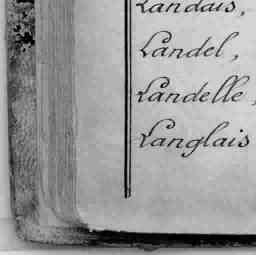 Landais,
Landel,
Landelle,
Langlais